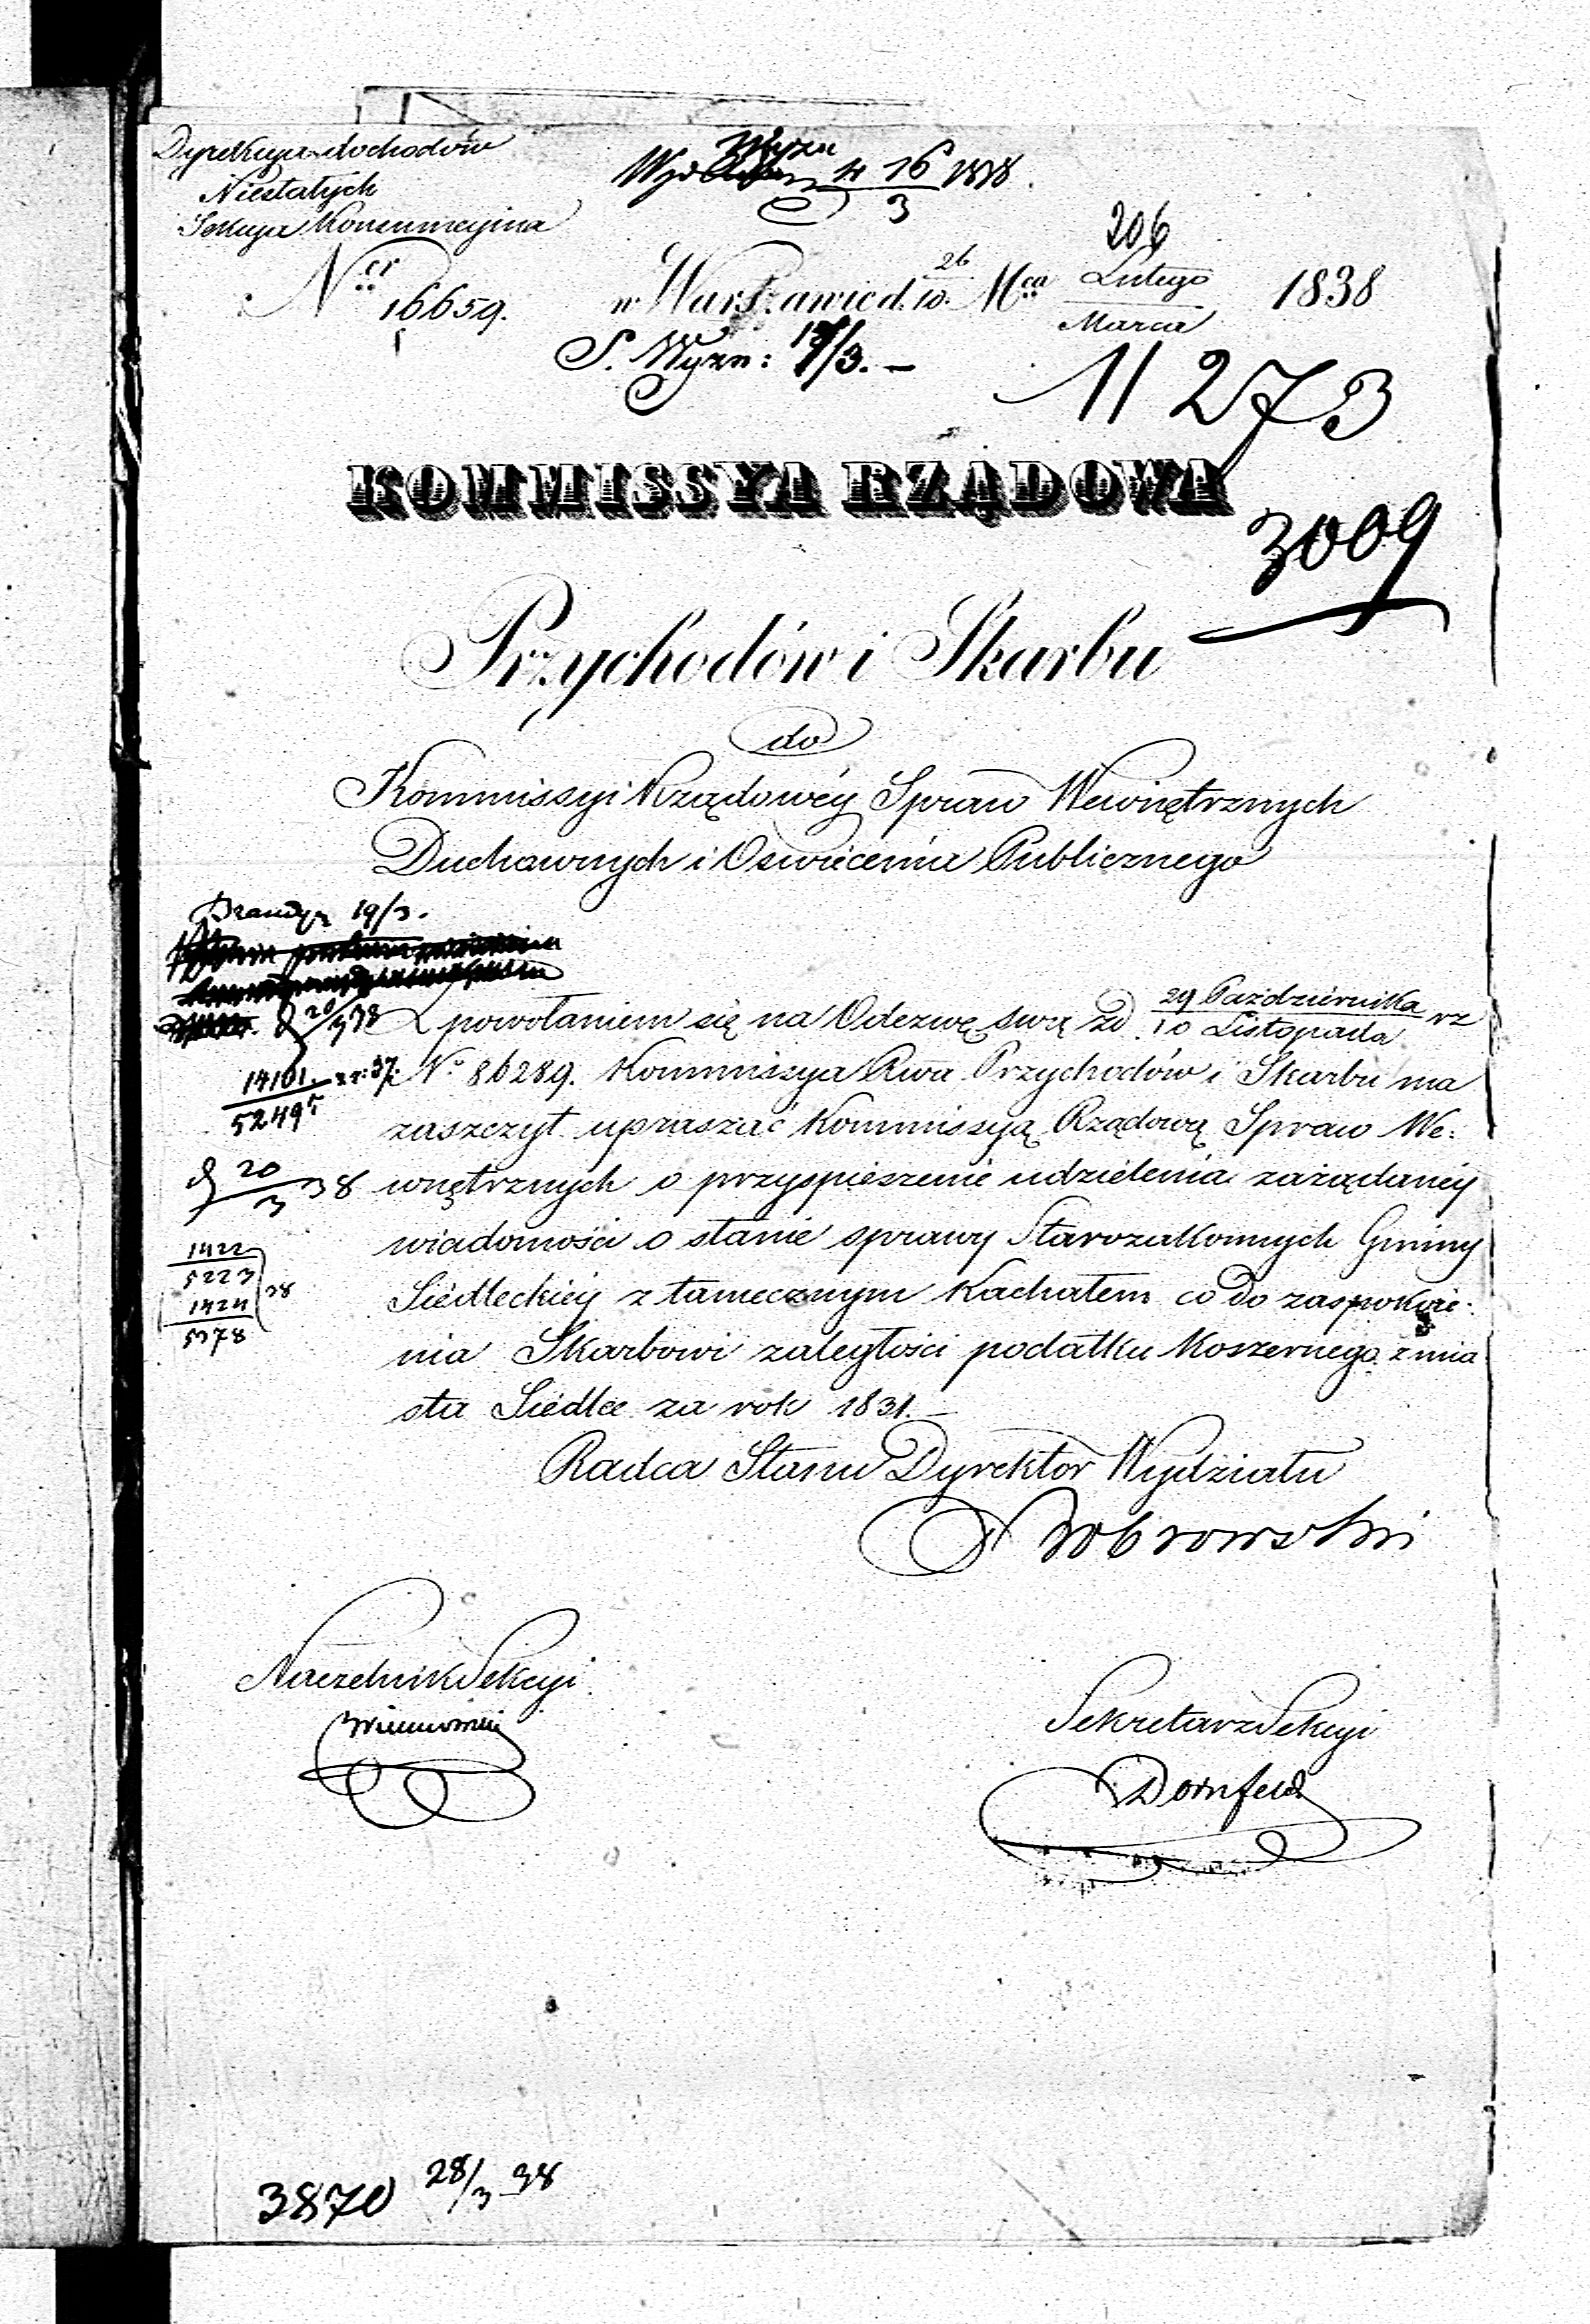 Dyrekcya dochodów
Niestałych
Sekcya Konsumcyjna
Wyzn
16/3 1838
206
Ner 16659.
w Warszawie d. 26/10. Mca Lutego/Marca 1838
S. Wyzn: 17/3. —
11273
KOMMISSYA RZĄDOWA
3009
Przychodów i Skarbu
do
Kommissyi Rządowéy Spraw Wewnętrznych
Duchownych i Oświecenia Publicznego
19/3.
20/3 38
Z powołaniem się na Odezwę swą zd. 29 Października/10 Listopada rz
14101/52495 zr: 37.
No 86289. Kommissya Rwa Przychodów i Skarbu ma
zaszczyt upraszać Kommissyą Rządową Spraw We:
20/3 38
wnętrznych o przyspieszenie udzielenia zażądanéy
wiadomości o stanie sprawy Starozakonnych Gminy
1422
5223
1424
5378
38
Siedleckiéy z tamecznym Kachałem co do zaspokoie:
nia Skarbowi zaległości podatku Koszernego z mia
sta Siedlce za rok 1831. —
Radca Stanu Dyrektor Wydziału
Dobrowski
Naczelnik Sekcyi
Sekretarz Sekcyi
Dornfeld
3870 28/3 38